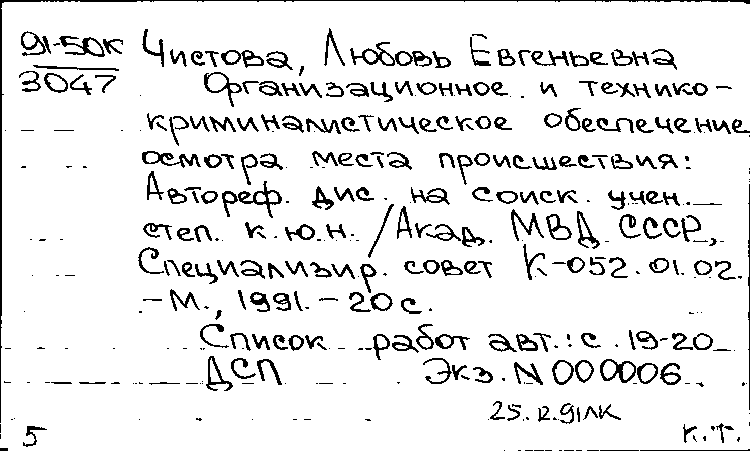 91-50к Чистова, Любовь Евгеньевна
3047 Организационное и технико-
криминалистическое обеспечение
осмотра места происшествия:
Автореф. дис. на соиск. учен.
степ. к.ю.н. / Акад. МВД СССР,
Специализир. совет К-052.01.02.
- М., 1991. - 20 с.
Список работ авт.: с. 19-20
ДСП Экз. N 000006.
25.12.91 ЛК
5 К.Т.